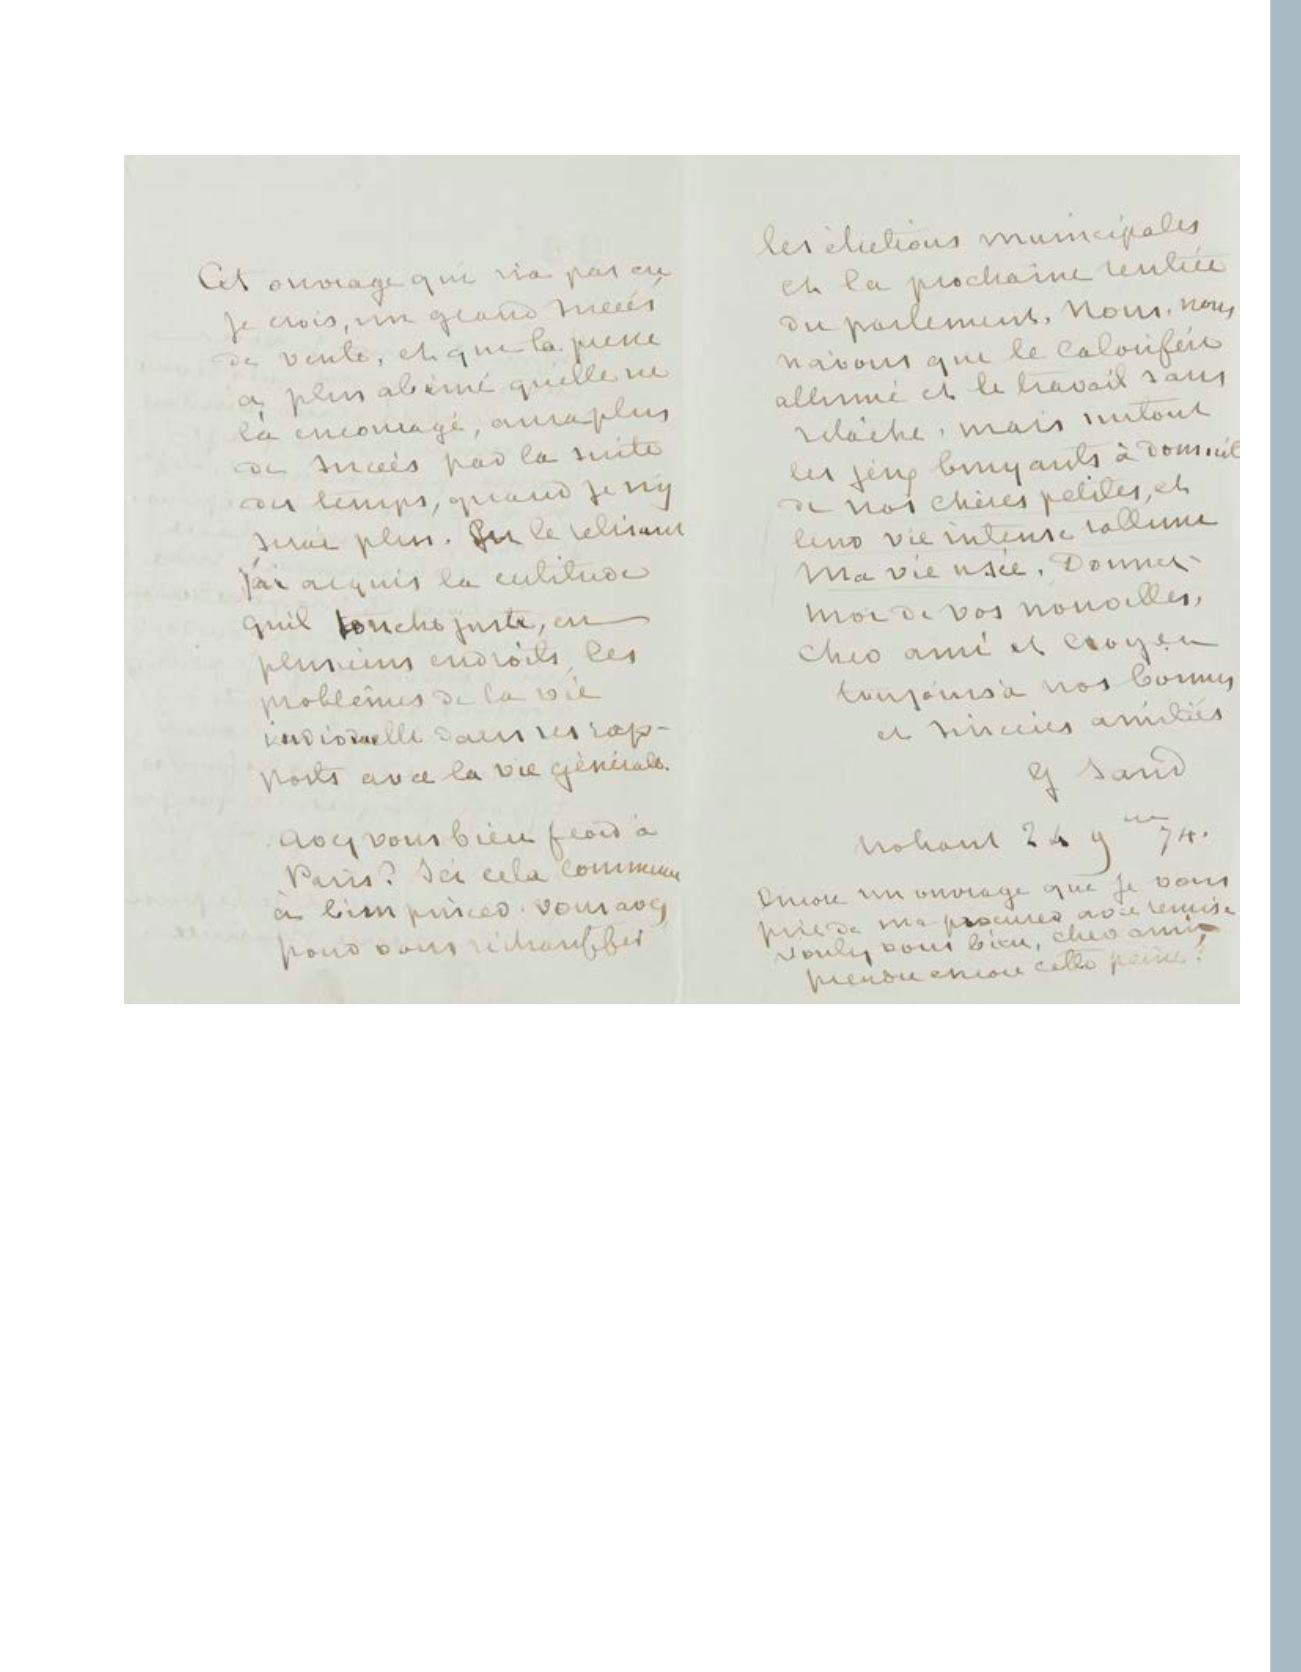 Cet ouvrage qui n'a pas eu
je crois, un grand succès
de vente, et que la presse
a plus abîmé qu'elle ne
l'a encouragé, aura plus
de succès par la suite
des temps, quand je n'y
serai plus. En le relisant
j'ai acquis la certitude
qu'il touche juste, en
plusieurs endroits, les
problèmes de la vie
individuelle dans ses rap-
ports avec la vie générale.
Avez vous bien froid à
Paris? Ici cela commence
à bien pincer. vous avez
pour vous réchauffer
les élections municipales
et la prochaine rentrée
du parlement. Nous, nous
n'avons que le calorifère
allumé et le travail sans
relâche, mais surtout
les jeux bruyants à domicile
de nos chères petites, et
leur vie intense rallume
ma vie usée. Donnez-
moi de vos nouvelles,
cher ami et croyez
toujours à nos bonnes
et sincères amitiés
G Sand
Nohant 24 9bre 74.
Encore un ouvrage que je vous
prie de me procurer avec remise
voulez vous bien, cher ami,
prendre encore cette peine?